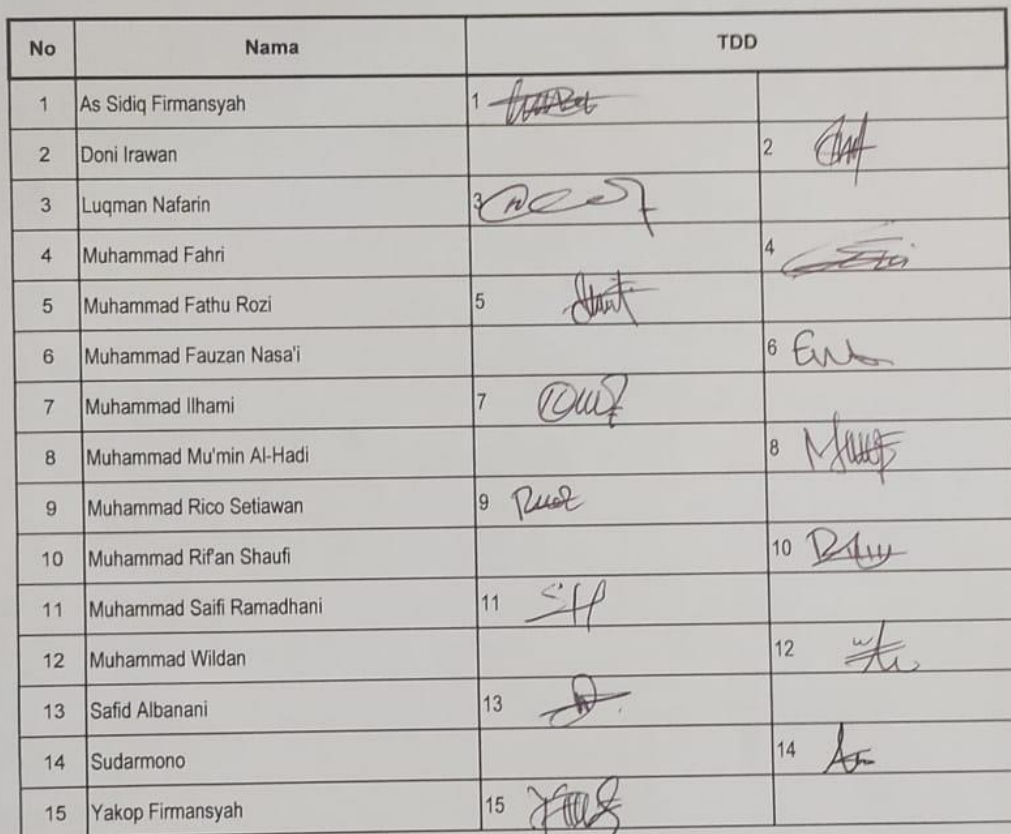 No Nama TDD
1 As Sidiq Firmansyah 1
2 Doni Irawan 2
3 Luqman Nafarin 3
4 Muhammad Fahri 4
5 Muhammad Fathu Rozi 5
6 Muhammad Fauzan Nasa'i 6
7 Muhammad Ilhami 7
8 Muhammad Mu'min Al-Hadi 8
9 Muhammad Rico Setiawan 9
10 Muhammad Rif'an Shaufi 10
11 Muhammad Saifi Ramadhani 11
12 Muhammad Wildan 12
13 Safid Albanani 13
14 Sudarmono 14
15 Yakop Firmansyah 15